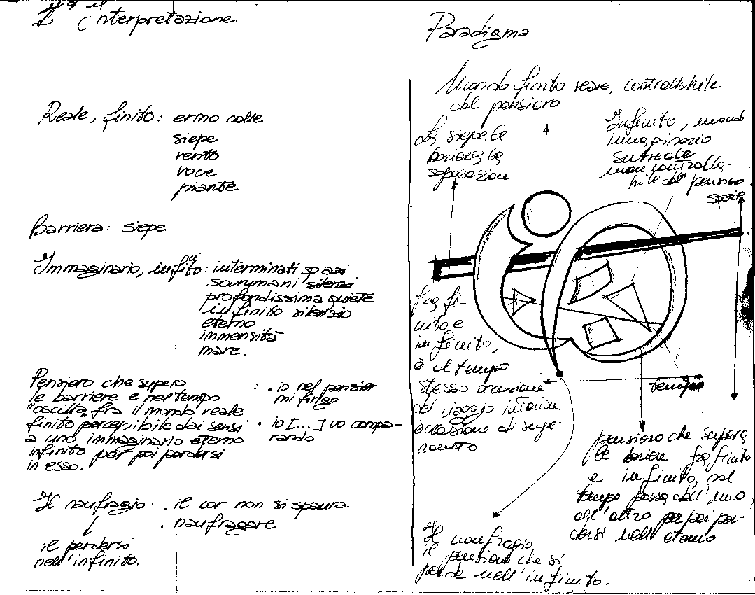 interpretazione
Reale, finito: ermo colle
siepe
vento
voce
piante
Barriera: siepe
Immaginario, infinito: interminati spazi
sovrumani silenzi
profondissima quiete
infinito silenzio
eterno
immensità
mare.
Pensiero che supera : . io nel pensier
le barriere e pertanto mi fingo
oscilla fra il mondo reale
finito percepibile dai sensi . io [...] vo compa-
a uno immaginario eterno rando
infinito per poi perdersi
in esso.
Il naufragio: . il cor non si spaura
. naufragare
il perdersi
nell'infinito.
Paradigma
Mondo finito reale, controllabile
dal pensiero
siepe
separazione
Infinito, mondo
immaginario
del pensiero
fra fi-
nito e
infinito,
è al tempo
stesso
occasione di supe-
ramento
pensiero che supera
le barriere fra finito
e infinito, nel
tempo passa dall'uno
all'altro per poi per-
dersi nell'eterno
Il naufragio
il pensiero che si
perde nell'infinito.